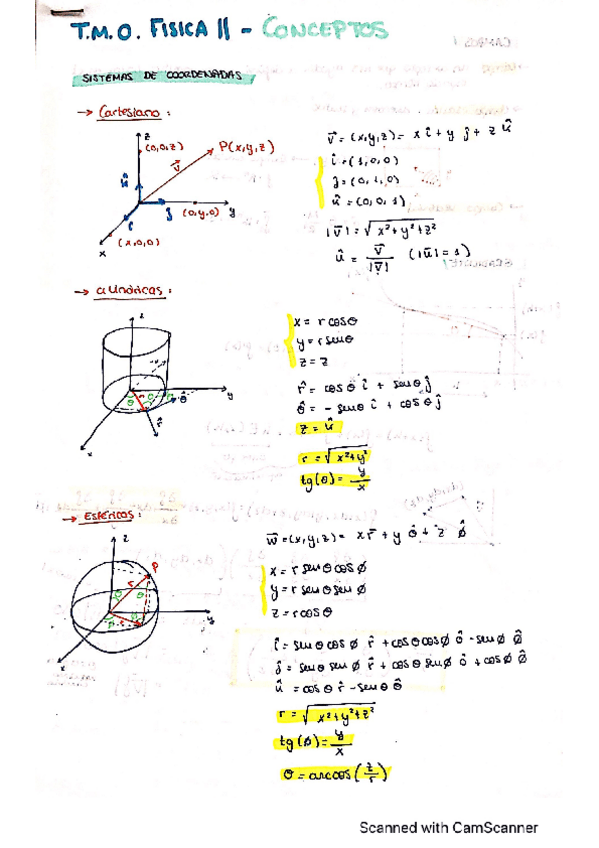 T.M.O. FISICA II - CONCEPTOS
SISTEMAS DE COORDENADAS
→ Cartesiano:
z
(0,0,z)
P(x,y,z)
v⃗
û
(0,y,0)
y
(x,0,0)
x
v⃗ = (x,y,z) = x î + y ĵ + z û
î = (1,0,0)
ĵ = (0,1,0)
û = (0,0,1)
|v⃗| = √x²+y²+z²
û = v⃗/|v⃗| (|ū| = 1)
→ Cilíndricas:
z
y
x
r̂
θ̂
x = r cosθ
y = r senθ
z = z
r̂ = cosθ î + senθ ĵ
θ̂ = - senθ î + cosθ ĵ
z = û
r = √x²+y²
tg(θ) = y/x
→ Esféricas:
z
P
r
θ
y
x
w⃗ = (x,y,z) = x r̂ + y θ̂ + z φ̂
x = r senθ cosφ
y = r senθ senφ
z = r cosθ
î = senθ cosφ r̂ + cosθ cosφ θ̂ - senφ φ̂
ĵ = senθ senφ r̂ + cosθ senφ θ̂ + cosφ φ̂
û = cosθ r̂ - senθ θ̂
r = √x²+y²+z²
tg(φ) = y/x
θ = arccos(z/r)
Scanned with CamScanner